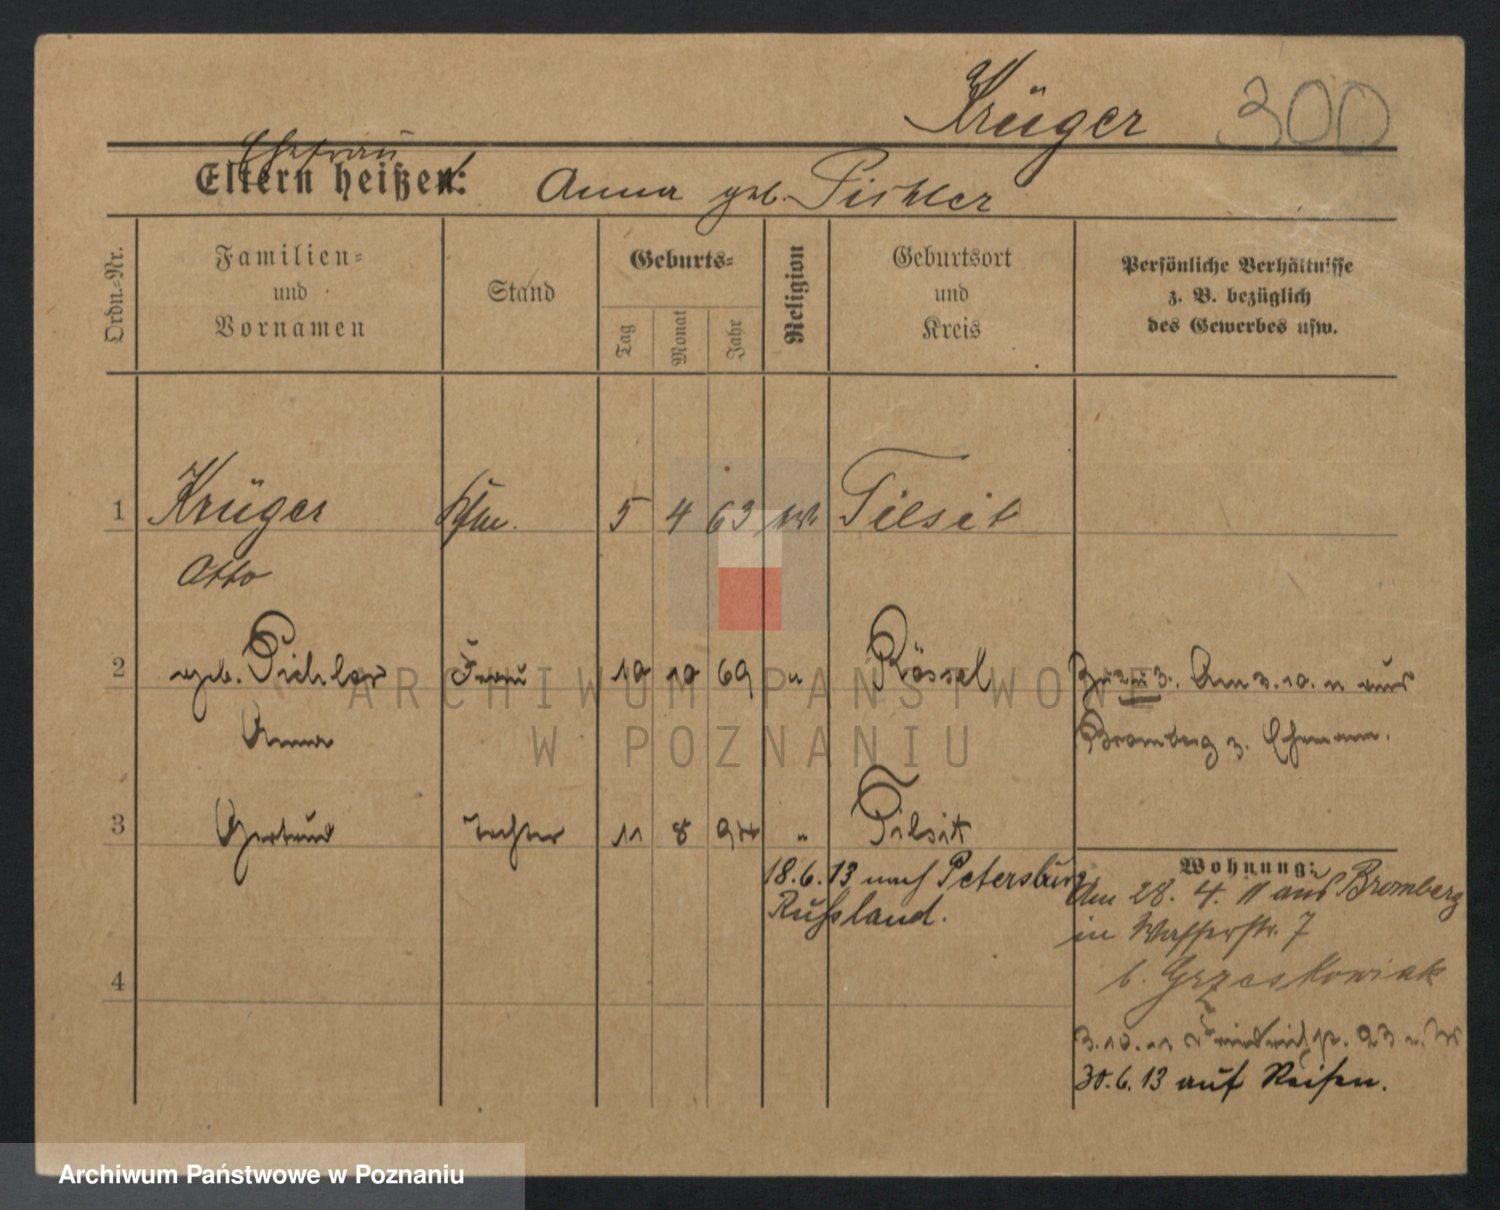 Krüger 300
Ehefrau
Eltern heißen: Anna geb. Pichler
Ordn.-Nr.
Familien-
und
Vornamen
Stand
Geburts-
Tag
Monat
Jahr
Religion
Geburtsort
und
Kreis
Persönliche Verhältnisse
z. B. bezüglich
des Gewerbes usw.
1 Krüger Kfm. 5 4 63 Tilsit
Otto
2 geb. Pichler Frau 10 10 69 " Rössel Zu 2 u 3. Am 3.10.11 aus
Anna Bromberg z. Ehemann.
3 Gertrud Tochter 11 8 94 " Tilsit
18.6.13 nach Petersburg
Russland.
Wohnung:
Am 28. 4. 11 aus Bromberg
in Wasserstr. 7
b. Grzeskowiak
4
3.10.11 23
30.6.13 auf Reisen.
ARCHIWUM PAŃSTWOWE
W POZNANIU
Archiwum Państwowe w Poznaniu